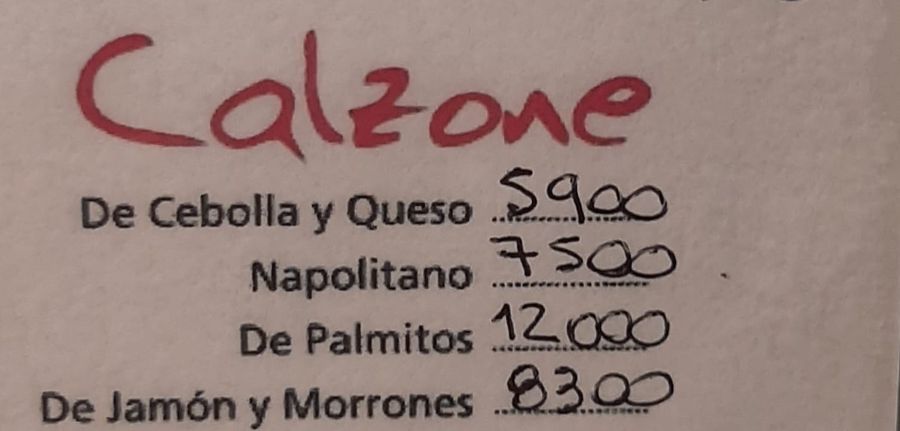 Calzone
De Cebolla y Queso 5900
Napolitano 7500
De Palmitos 12000
De Jamón y Morrones 8300